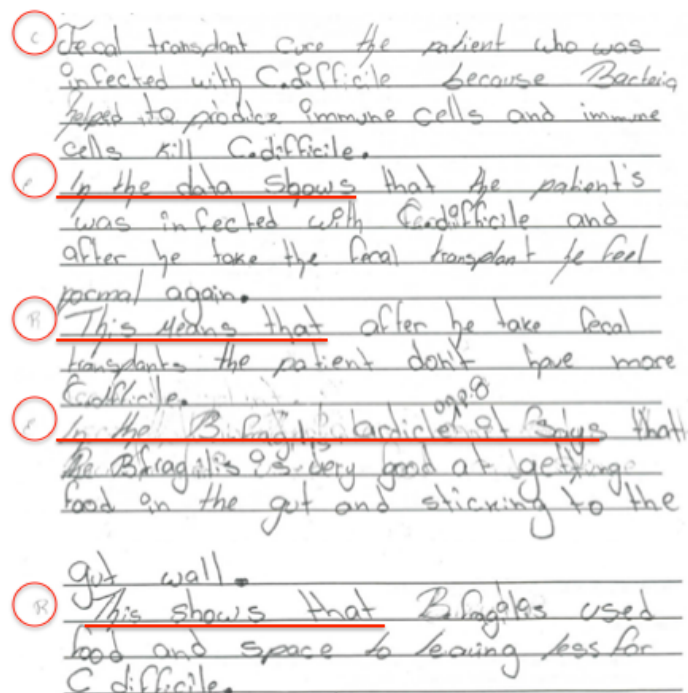 C Fecal transplant cure the patient who was
infected with C.difficile because Bacteria
helped to produce immune cells and immune
cells kill C.difficile.
E In the data shows that the patient's
was infected with C.difficile and
after he take the fecal transplant he feel
normal again.
R This means that after he take fecal
transplants the patient don't have more
C.difficile.
E In the B.fragilis article on p.8 it says that
the B.fragilis is very good at getting
food in the gut and sticking to the
gut wall.
R This shows that B.fragilis used
food and space to leaving less for
C difficile.